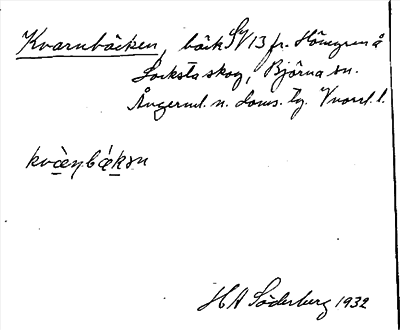 Kvarnbäcken, bäck SV 13 fr. Hömyren å
Locksta skog, Björna sn.
Ångerml. n. doms. tg. Vnorrl. l.
kvæ̀ṇbǽkən
H A Söderberg 1932